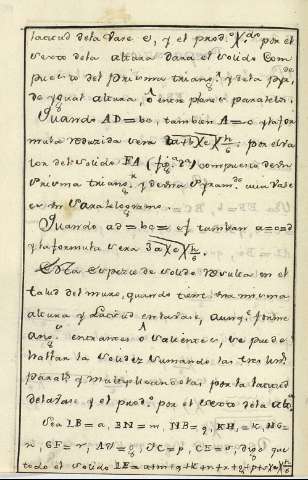 latitud dela Vase e, y el prod.º X.do por el
sexto dela altura dara el solido Com
puesto del Prisma triang.r y dela Pyr.de
de ygual altura, ô entre planos paralelos.
Quando AD=bc, tambien A=o y la for
mula reduzida sera X e X h/6; por el va
lor del solido EA (fig.ª 2ª) compuesto de un
Prisma triang.r y de una Pyram.de cuia Vase
es un Paralelogramo.
Quando, ad=bc=ef tambien a=o=d
y la formula sera 3a X e X h/6.
Esta Especie de solido resulta en el
talud del muro, quando tiene una misma
altura y Latitud en la Vase, aunq.e forme
ang.º entrantes ô saliente, se puede
hallar la solidez sumando las tres lin.s
paral.s y multiplicandolas por la latitud
dela Vase y el prod.º por el sexto dela alt.ª
Sea LB=a, BN=m, NB=q, KH=K, HG=
n, GF=r, CE=s; digo que
todo el solido LE=a+m+q+K+n+r+